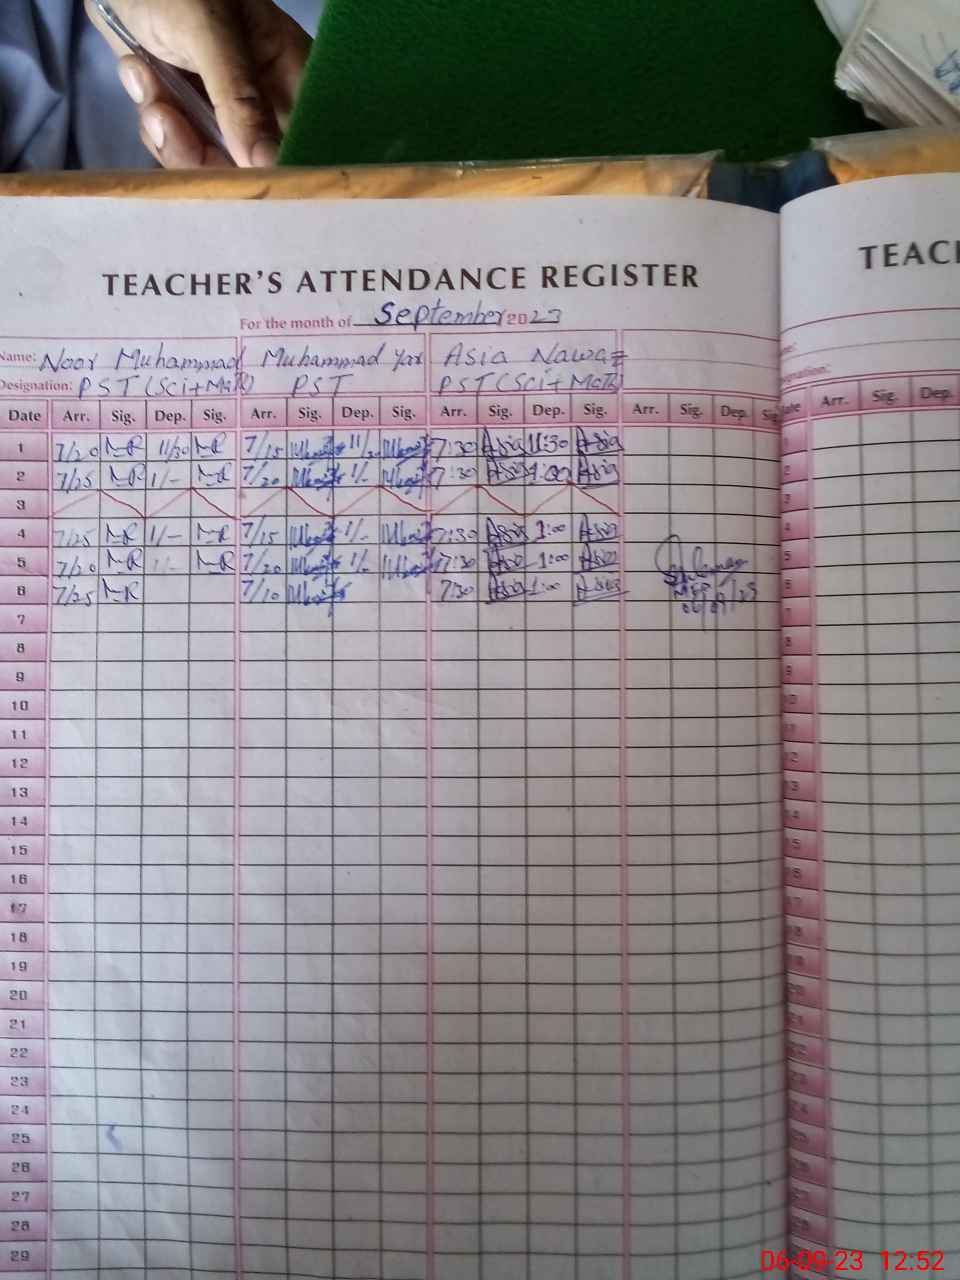 TEACHER'S ATTENDANCE REGISTER
TEAC
For the month of September 2023
Name: Noor Muhammad Muhammad Yar Asia Nawaz
Designation: PST (Sci+Math) PST PST (Sci+Math)
Date Arr. Sig. Dep. Sig. Arr. Sig. Dep. Sig. Arr. Sig. Dep. Sig. Arr. Sig. Dep. Sig Arr. Sig. Dep.
1 7/20 NR 11/30 NR 7/15 7:30 Asia 11:30 Asia
2 7/25 NR 1/- NR 7/20 1/- 7:30 Asia 1:00 Asia
3
4 7/25 NR 1/- NR 7/15 1/- 7:30 Asia 1:00 Asia
5 7/20 NR 1/- NR 7/20 1/- 7:30 Asia 1:00 Asia
6 7/25 NR 7/10 7:30 Asia 1:00 Asia
06/09/23
7
8
9
10
11
12
13
14
15
16
17
18
19
20
21
22
23
24
25
26
27
28
29
06-09-23 12:52